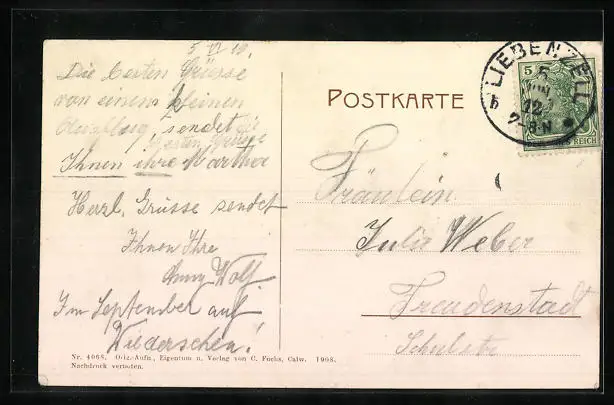 5 VI 12.
Die besten Grüsse
von einem kleinen
Ausflug, sendet
besten Grüsse
Ihnen ihre Martha
Herzl. Grüsse sendet
Ihnen Ihre
Anny Wolf.
Im September auf
Wiedersehen!
Nr. 4068. Orig.-Aufn., Eigentum u. Verlag von C. Fuchs, Calw. 1908.
Nachdruck verboten.
POSTKARTE
LIEBENZELL
5
JUN
12
7-8 N
b
5
REICH
Fräulein
Julie Weber
Freudenstadt
Schulstr